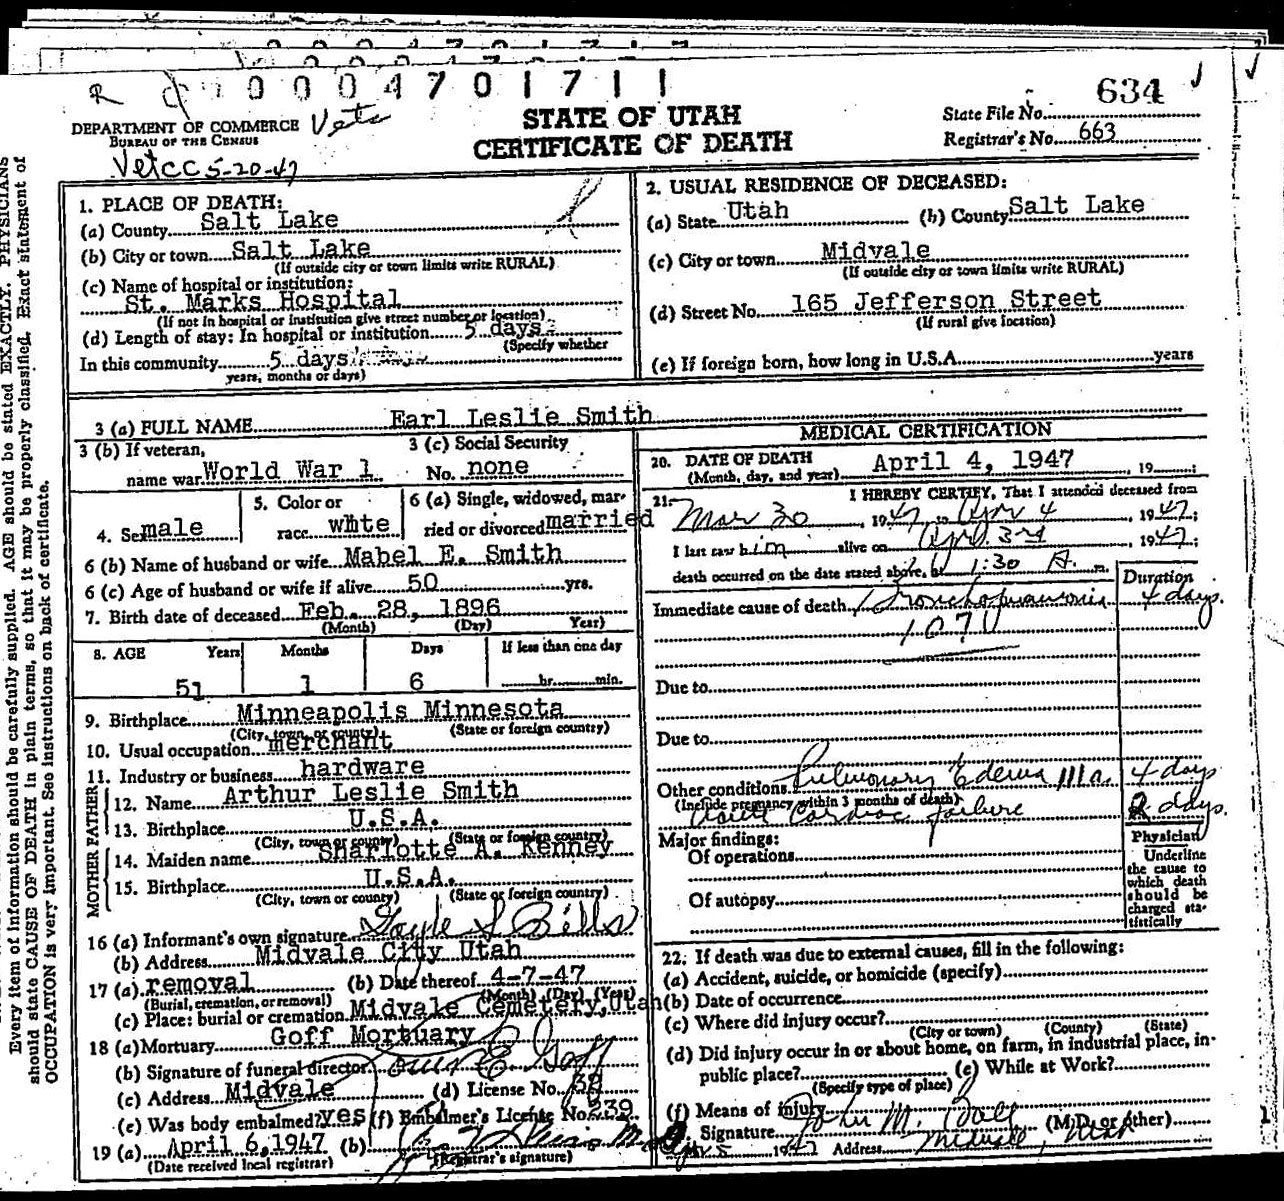 0004701711
634
DEPARTMENT OF COMMERCE Vets
BUREAU OF THE CENSUS
Vet CC 5-20-47
STATE OF UTAH
CERTIFICATE OF DEATH
State File No.
Registrar's No. 663
1. PLACE OF DEATH:
(a) County Salt Lake
(b) City or town Salt Lake
(If outside city or town limits write RURAL)
(c) Name of hospital or institution:
St. Marks Hospital
(If not in hospital or institution give street number or location)
(d) Length of stay: In hospital or institution 5 days
(Specify whether
In this community 5 days
years, months or days)
2. USUAL RESIDENCE OF DECEASED:
(a) State Utah (b) County Salt Lake
(c) City or town Midvale
(If outside city or town limits write RURAL)
(d) Street No. 165 Jefferson Street
(If rural give location)
(e) If foreign born, how long in U.S.A. years
3 (a) FULL NAME Earl Leslie Smith
3 (b) If veteran, name war World War 1
3 (c) Social Security No. none
4. Sex male
5. Color or race white
6 (a) Single, widowed, married or divorced married
6 (b) Name of husband or wife Mabel E. Smith
6 (c) Age of husband or wife if alive 50 yrs.
7. Birth date of deceased Feb. 28, 1896
(Month) (Day) Year)
8. AGE Years Months Days If less than one day
51 1 6 hr. min.
9. Birthplace Minneapolis Minnesota
(City, town, or county) (State or foreign country)
10. Usual occupation merchant
11. Industry or business hardware
FATHER
12. Name Arthur Leslie Smith
13. Birthplace U.S.A.
(City, town or county) (State or foreign country)
MOTHER
14. Maiden name Sharlotte A. Kenney
15. Birthplace U.S.A.
(City, town or county) (State or foreign country)
16 (a) Informant's own signature Gayle S Bills
(b) Address Midvale City Utah
17 (a) removal (b) Date thereof 4-7-47
(Burial, cremation, or removal) (Month) (Day) (Year)
(c) Place: burial or cremation Midvale Cemetery, Utah
18 (a) Mortuary Goff Mortuary
(b) Signature of funeral director Goff
(c) Address Midvale (d) License No. 38
(e) Was body embalmed? yes (f) Embalmer's License No. 239
19 (a) April 6, 1947 (b)
(Date received local registrar) (Registrar's signature)
MEDICAL CERTIFICATION
20. DATE OF DEATH April 4, 1947, 19 ;
(Month, day, and year)
21. I HEREBY CERTIFY, That I attended deceased from
Mar 30, 1947, to Apr 4, 1947;
I last saw him alive on Apr. 3rd, 1947;
death occurred on the date stated above, at 1:30 A. m.
Duration
Immediate cause of death Bronchopneumonia 4 days.
107
Due to
Due to
Other conditions Pulmonary Edema 111a. 4 days
(Include pregnancy within 3 months of death)
Acute Cardiac failure 2 days.
Major findings:
Of operations
Of autopsy
Physician
Underline
the cause to
which death
should be
charged sta-
tistically
22. If death was due to external causes, fill in the following:
(a) Accident, suicide, or homicide (specify)
(b) Date of occurrence
(c) Where did injury occur?
(City or town) (County) (State)
(d) Did injury occur in or about home, on farm, in industrial place, in-
public place? (e) While at Work?
(Specify type of place)
(f) Means of injury
Signature John M. (M.D. or other)
1947 Address Midvale, Utah
Every item of information should be carefully supplied. AGE should be stated EXACTLY. PHYSICIANS
should state CAUSE OF DEATH in plain terms, so that it may be properly classified. Exact statement of
OCCUPATION is very important. See instructions on back of certificate.